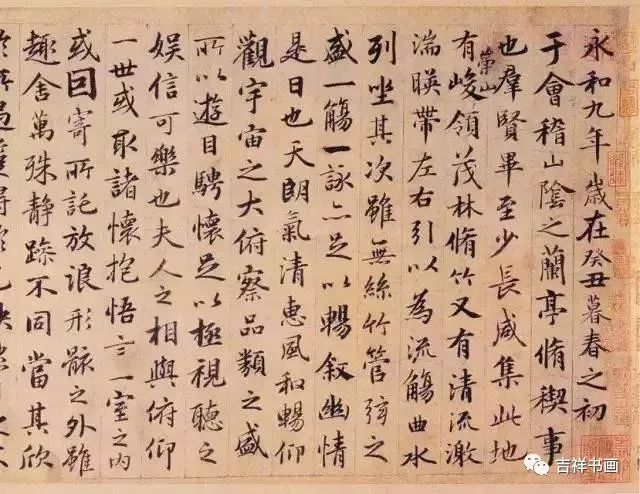 永和九年歲在癸丑暮春之初
于會稽山陰之蘭亭脩禊事
也羣賢畢至少長咸集此地
有崇山峻領茂林脩竹又有清流激
湍暎帶左右引以為流觴曲水
列坐其次雖無絲竹管弦之
盛一觴一詠亦足以暢敘幽情
是日也天朗氣清惠風和暢仰
觀宇宙之大俯察品類之盛
所以遊目騁懷足以極視聽之
娛信可樂也夫人之相與俯仰
一世或取諸懷抱悟言一室之內
或因寄所託放浪形骸之外雖
趣舍萬殊靜躁不同當其欣
吉祥书画